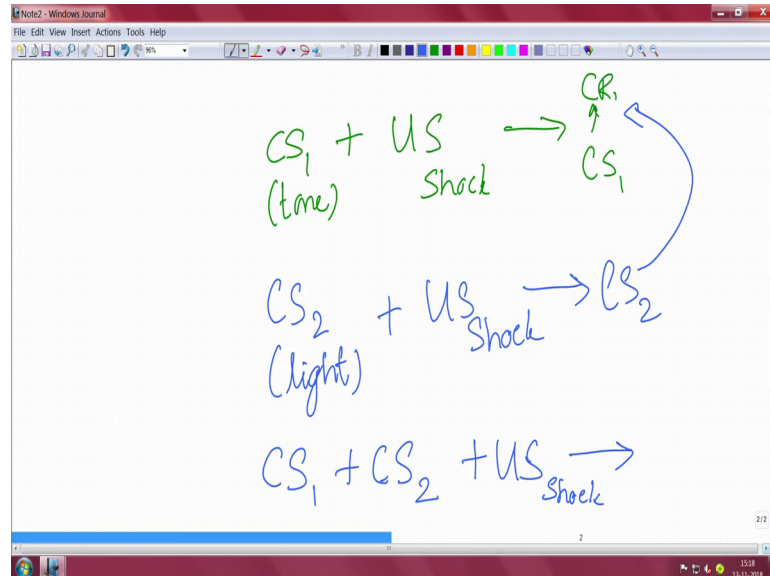 Note2 - Windows Journal
File Edit View Insert Actions Tools Help
96%
B I
CR₁
↑
CS₁ + US → CS₁
(tone) Shock
CS₂ + US → CS₂
(light) Shock
CS₁ + CS₂ + US →
Shock
2/2
2
15:18
13-11-2018